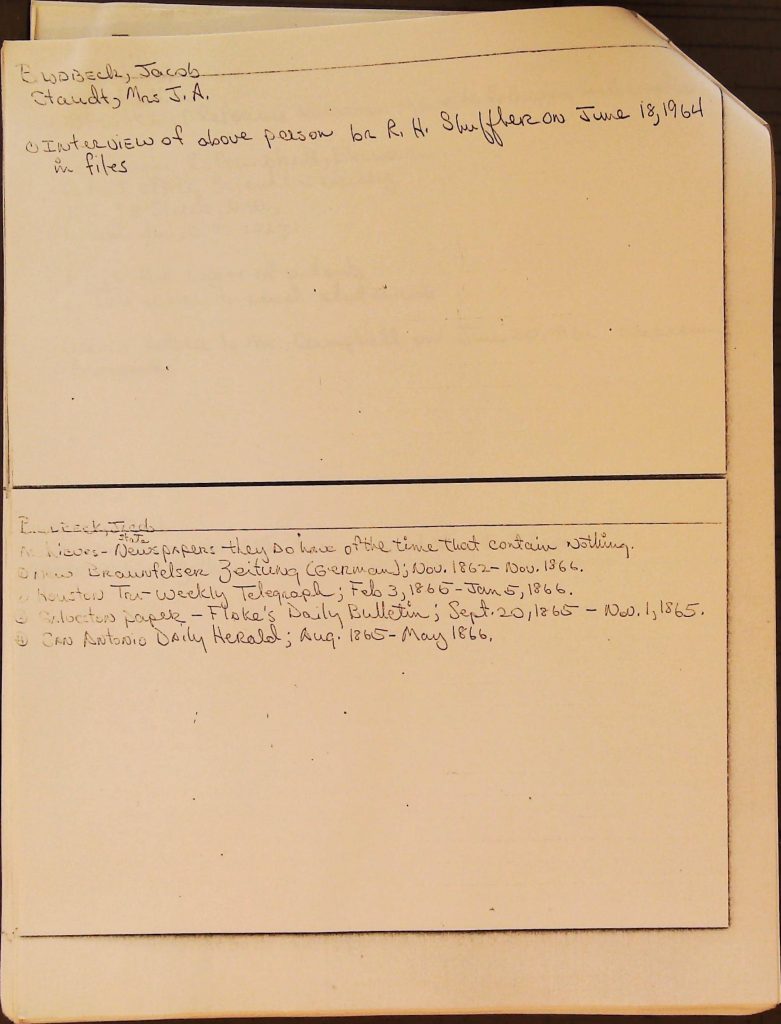 Brodbeck, Jacob
Staudt, Mrs J.A.
① Interview of above person by R. H. Shuffler on June 18, 1964
in files
Jacob
State
Newspapers they do have of the time that contain nothing.
Braunfelser Zeitung (German); Nov. 1862 - Nov. 1866.
Houston Tri-Weekly Telegraph; Feb 3, 1865 - Jan 5, 1866.
paper - Flake's Daily Bulletin; Sept. 20, 1865 - Nov. 1, 1865.
④ San Antonio Daily Herald; Aug. 1865 - May 1866.